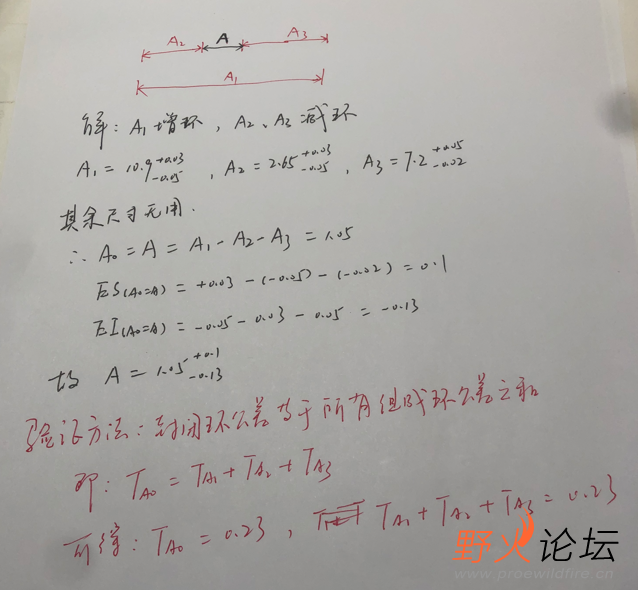 A₂ A A₃
A₁
解：A₁增环，A₂、A₃减环
A₁ = 10.9 +0.03 -0.05 ，A₂ = 2.65 +0.03 -0.05 ，A₃ = 7.2 +0.05 -0.02
其余尺寸无用.
∴ A₀ = A = A₁ - A₂ - A₃ = 1.05
ES(A₀=A) = +0.03 - (-0.05) - (-0.02) = 0.1
EI(A₀=A) = -0.05 - 0.03 - 0.05 = -0.13
故 A = 1.05 +0.1 -0.13
验证方法：封闭环公差等于所有组成环公差之和
即：T_A₀ = T_A₁ + T_A₂ + T_A₃
可得：T_A₀ = 0.23 ， T_A₁ + T_A₂ + T_A₃ = 0.23
野火论坛
www.proewildfire.cn